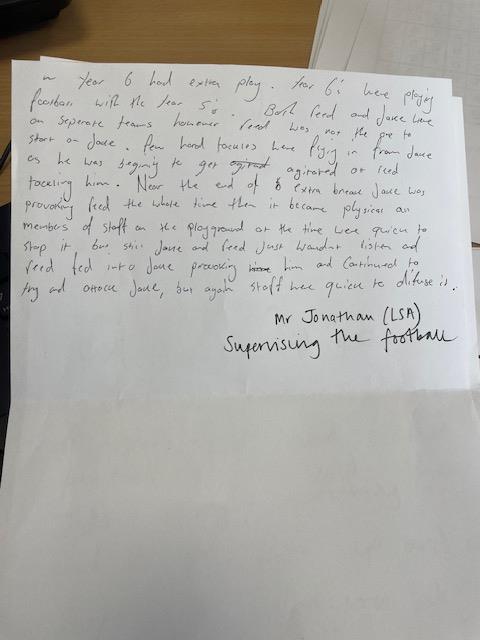 Year 6 had extra play. Year 6's were playing
football with the Year 5's. Both Reed and Jake were
on seperate teams however Reed was not the one to
start on Jake. Few hard tackles were flying in from Jake
as he was begining to get agitated at Reed
tackling him. Near the end of extra break Jake was
provoking Reed the whole time then it became physical all
members of staff on the playground at the time were quick to
stop it but still Jake and Reed just wouldnt listen and
Reed fed into Jake provoking him and continued to
try and attack Jake, but again staff were quick to difuse it.
Mr Jonathan (LSA)
Supervising the football